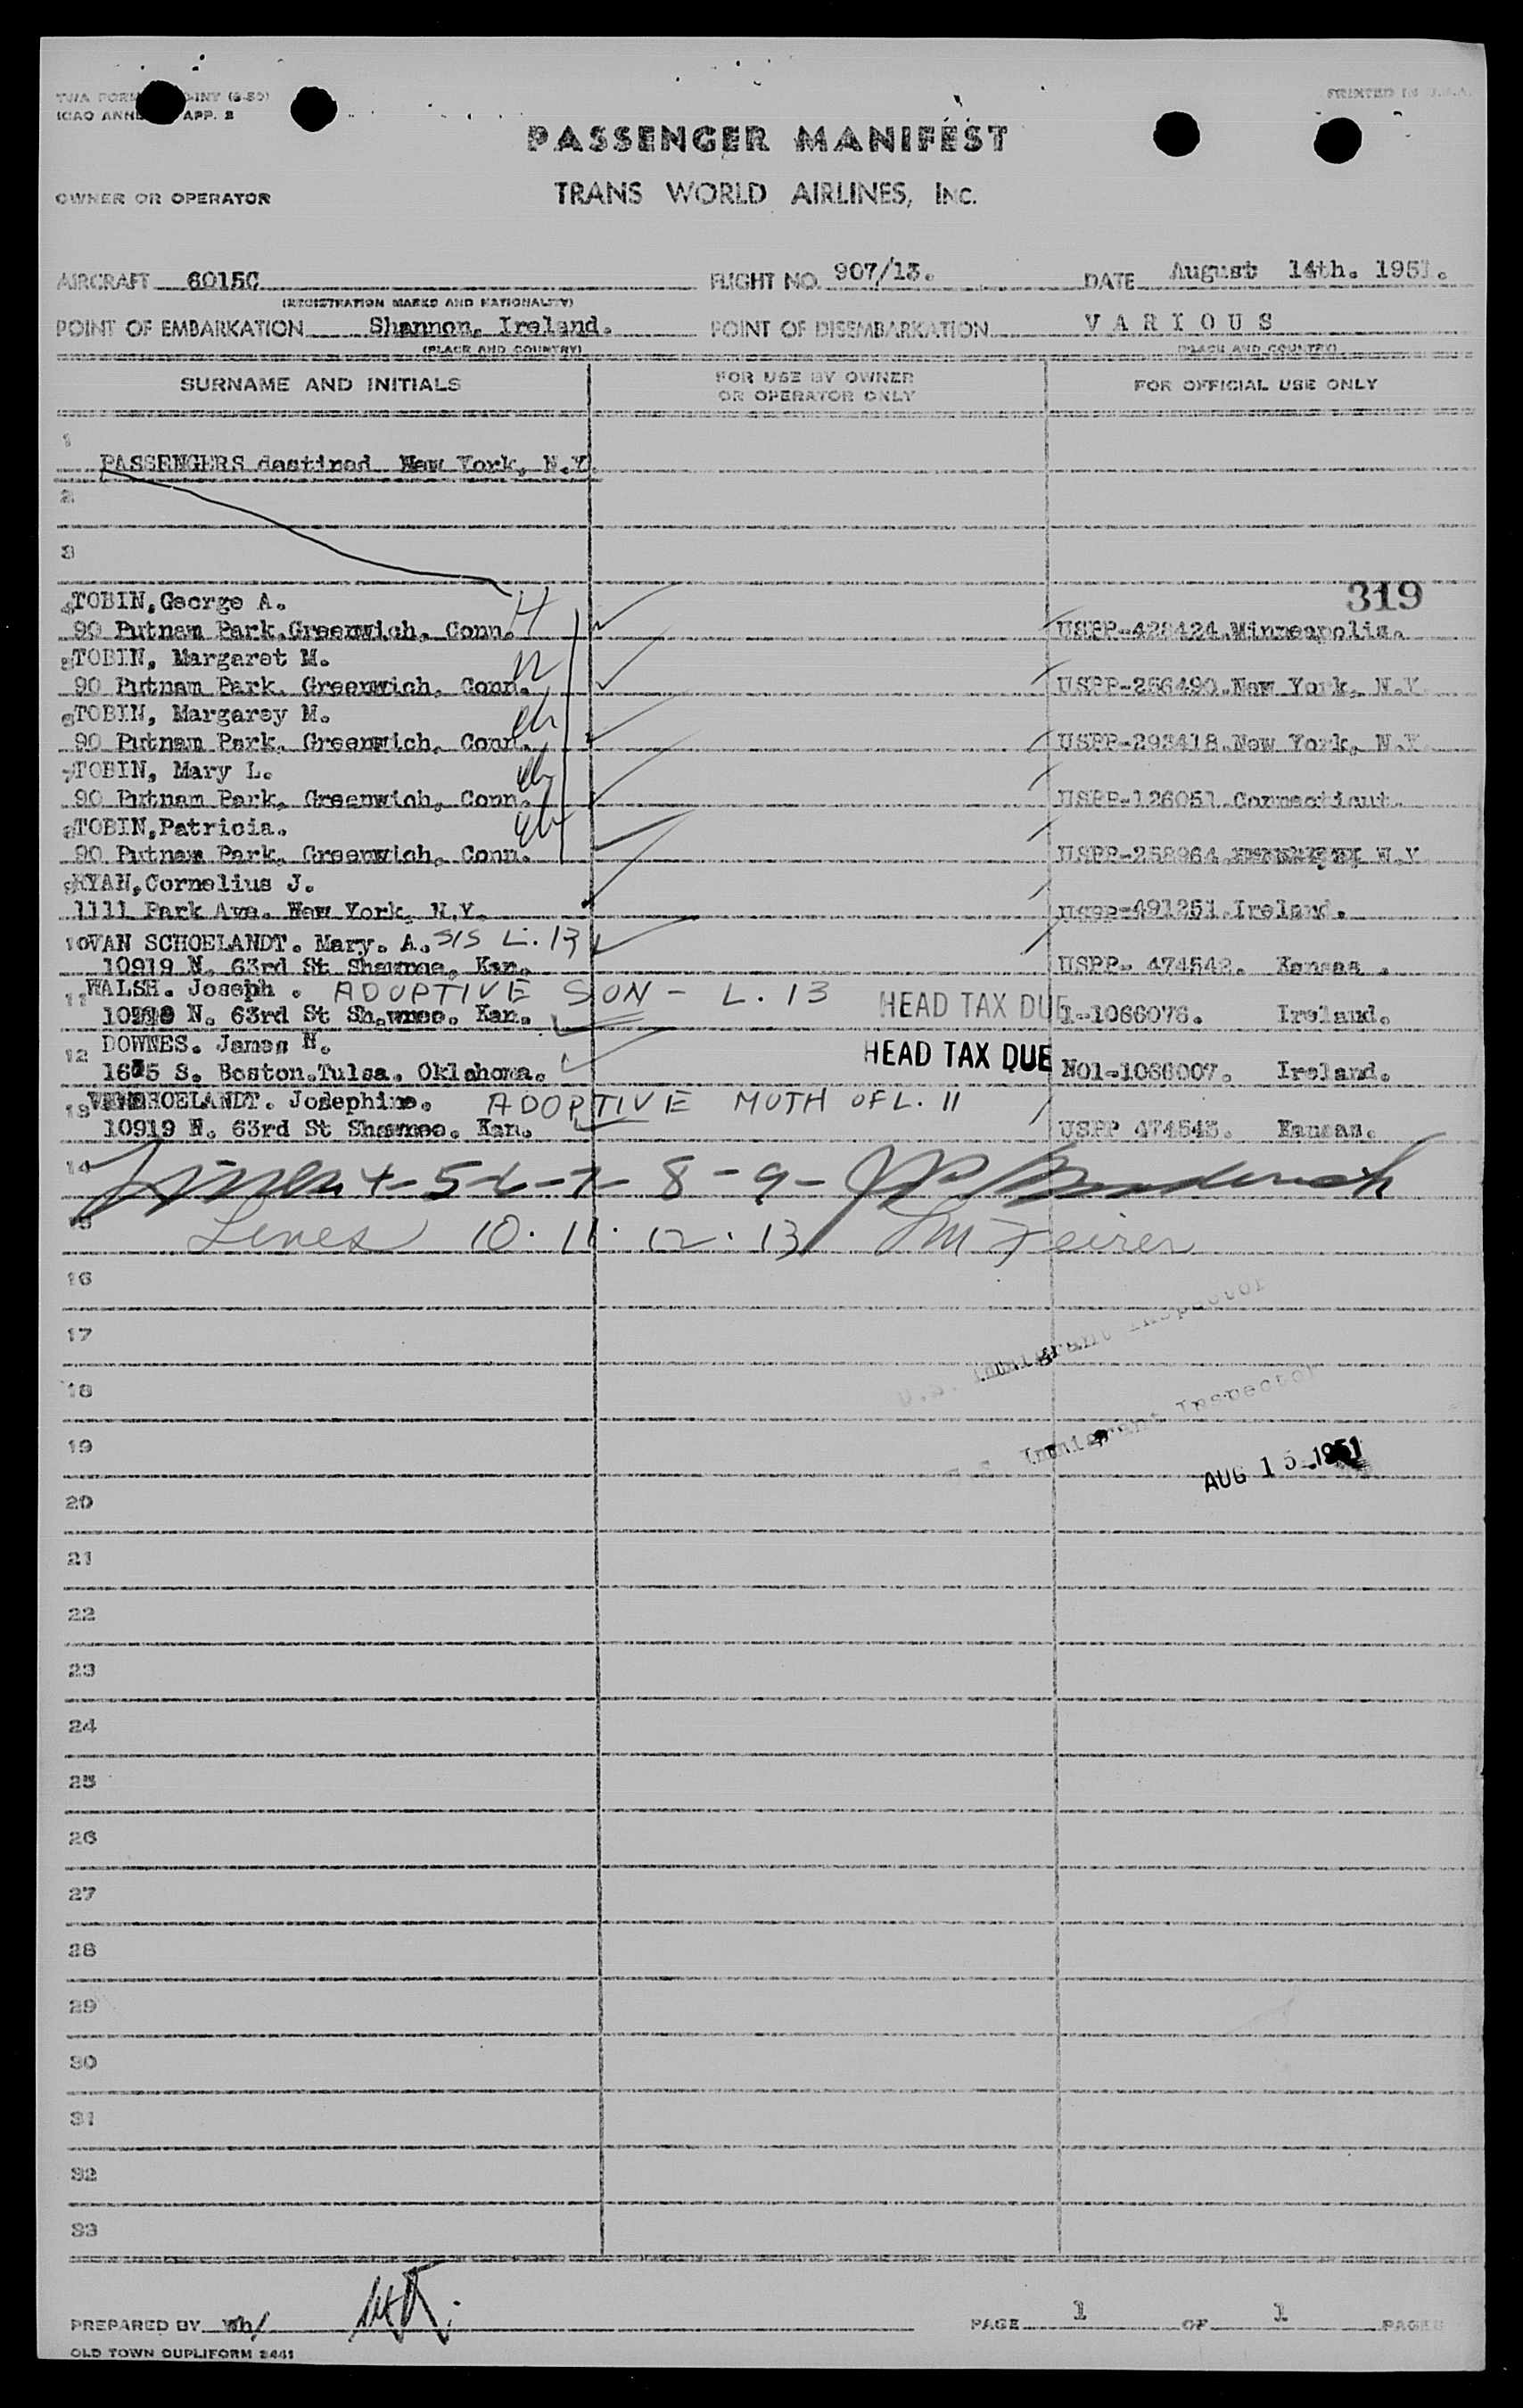 PRINTED IN U.S.A.
ICAO ANNEX APP. 2
PASSENGER MANIFEST
OWNER OR OPERATOR
TRANS WORLD AIRLINES, INC.
AIRCRAFT 6015C FLIGHT NO. 907/13. DATE August 14th. 1951.
(REGISTRATION MARKS AND NATIONALITY)
POINT OF EMBARKATION Shannon, Ireland. POINT OF DISEMBARKATION VARIOUS
(PLACE AND COUNTRY) (PLACE AND COUNTRY)
SURNAME AND INITIALS FOR USE BY OWNER OR OPERATOR ONLY FOR OFFICIAL USE ONLY
1
PASSENGERS destined New York, N.Y.
2
3
319
4 TOBIN, George A.
90 Putnam Park, Greenwich, Conn. USPP-428424. Minneapolis.
5 TOBIN, Margaret M.
90 Putnam Park, Greenwich, Conn. USPP-256490. New York, N.Y.
6 TOBIN, Margarey M.
90 Putnam Park, Greenwich, Conn. USPP-293418. New York, N.Y.
7 TOBIN, Mary L.
90 Putnam Park, Greenwich, Conn. USPP-126051 Connecticut.
8 TOBIN, Patricia.
90 Putnam Park, Greenwich, Conn. USPP-258964 N.Y.
9 RYAN, Cornelius J.
1111 Park Ave. New York, N.Y. USPP-491251. Ireland.
10 VAN SCHOELANDT. Mary. A. SIS L. 13
10919 N. 63rd St Shawnee, Kan. USPP- 474542. Kansas .
11 WALSH. Joseph . ADOPTIVE SON - L. 13 HEAD TAX DUE
10919 N. 63rd St Shawnee. Kan. 1-1066076. Ireland.
12 DOWNES. James N. HEAD TAX DUE
1635 S. Boston. Tulsa. Oklahoma. NO1-1066007. Ireland.
13 Josephine. ADOPTIVE MOTH OF L. 11
10919 N. 63rd St Shawnee. Kan. USPP 474543. Kansas.
14 Lines 4-5-6-7-8-9-
15 Lines 10. 11. 12. 13
16
U.S. Immigrant Inspector
17
18
U.S. Immigrant Inspector
19
AUG 15 1951
20
21
22
23
24
25
26
27
28
29
30
31
32
33
PREPARED BY wh/ PAGE 1 OF 1 PAGES
OLD TOWN DUPLIFORM 2441